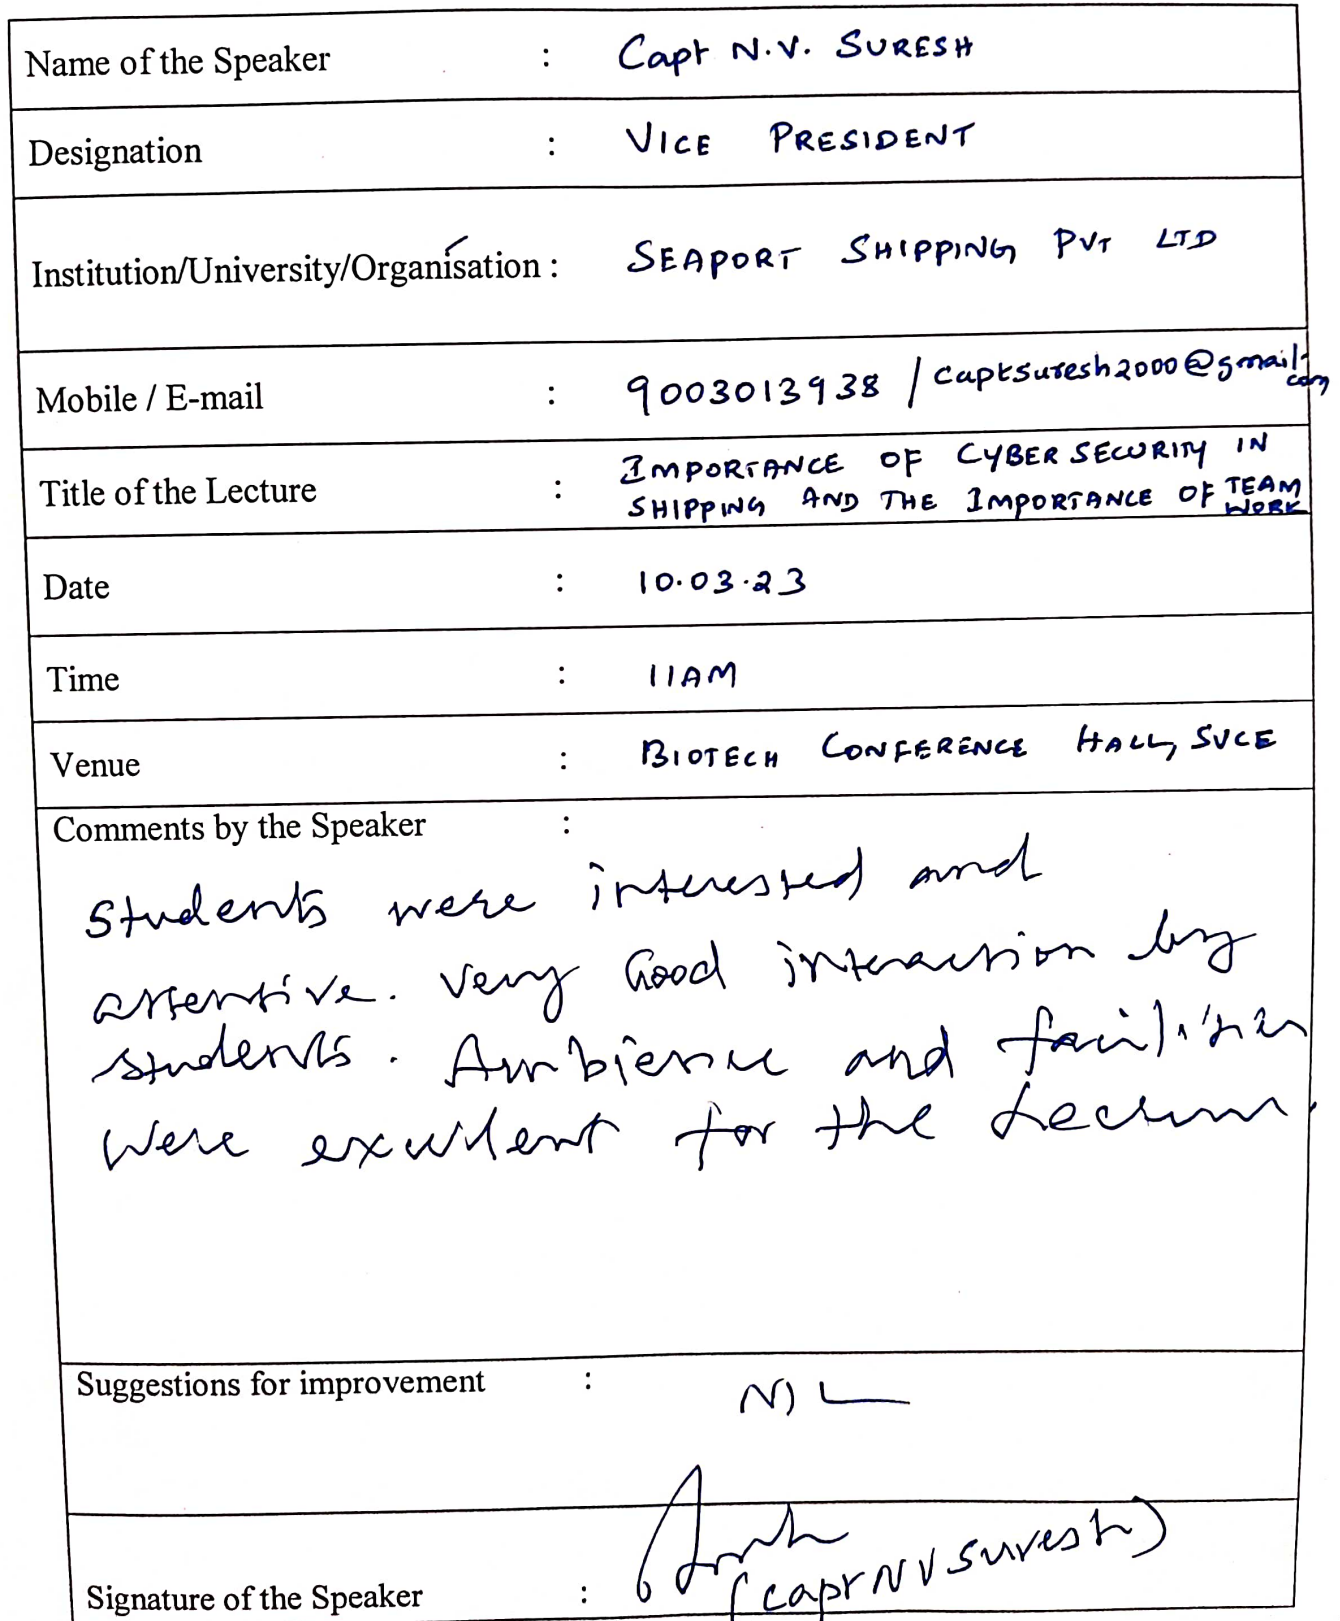 Name of the Speaker : Capt N.V. SURESH
Designation : VICE PRESIDENT
Institution/University/Organisation : SEAPORT SHIPPING PVT LTD
Mobile / E-mail : 9003013938 / captsuresh2000@gmail.com
Title of the Lecture : IMPORTANCE OF CYBER SECURITY IN
SHIPPING AND THE IMPORTANCE OF TEAM WORK
Date : 10.03.23
Time : 11AM
Venue : BIOTECH CONFERENCE HALL, SVCE
Comments by the Speaker :
Students were interested and
attentive. Very Good interaction by
students. Ambience and facilities
were excellent for the Lecture.
Suggestions for improvement : NIL
Signature of the Speaker : (Capt N V Suresh)